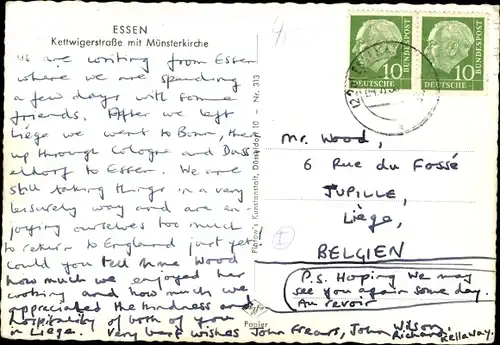 ESSEN
Kettwigerstraße mit Münsterkirche
We are writing from Essen
where we are spending
a few days with some
friends. After we left
Liège we went to Bonn, then
up through Cologne and Duss
eldorf to Essen. We are
still taking things in a very
leisurely way and are en-
joying ourselves too much
to return to England just yet.
Could you tell Mme Wood
how much we enjoyed her
cooking and how much we
appreciated the kindness and
hospitality of both of you
in Liège. Very best wishes John Frears, John Wilson,
Richard Kellaway.
Kunstanstalt, Düsseldorf 10 - Nr. 313
Agfa
Papier
10 BUNDESPOST
DEUTSCHE
10 BUNDESPOST
DEUTSCHE
Mr. Wood,
6 Rue du Fossé
JUPILLE,
Liège,
BELGIEN
P.S. Hoping we may
see you again some day.
Au revoir